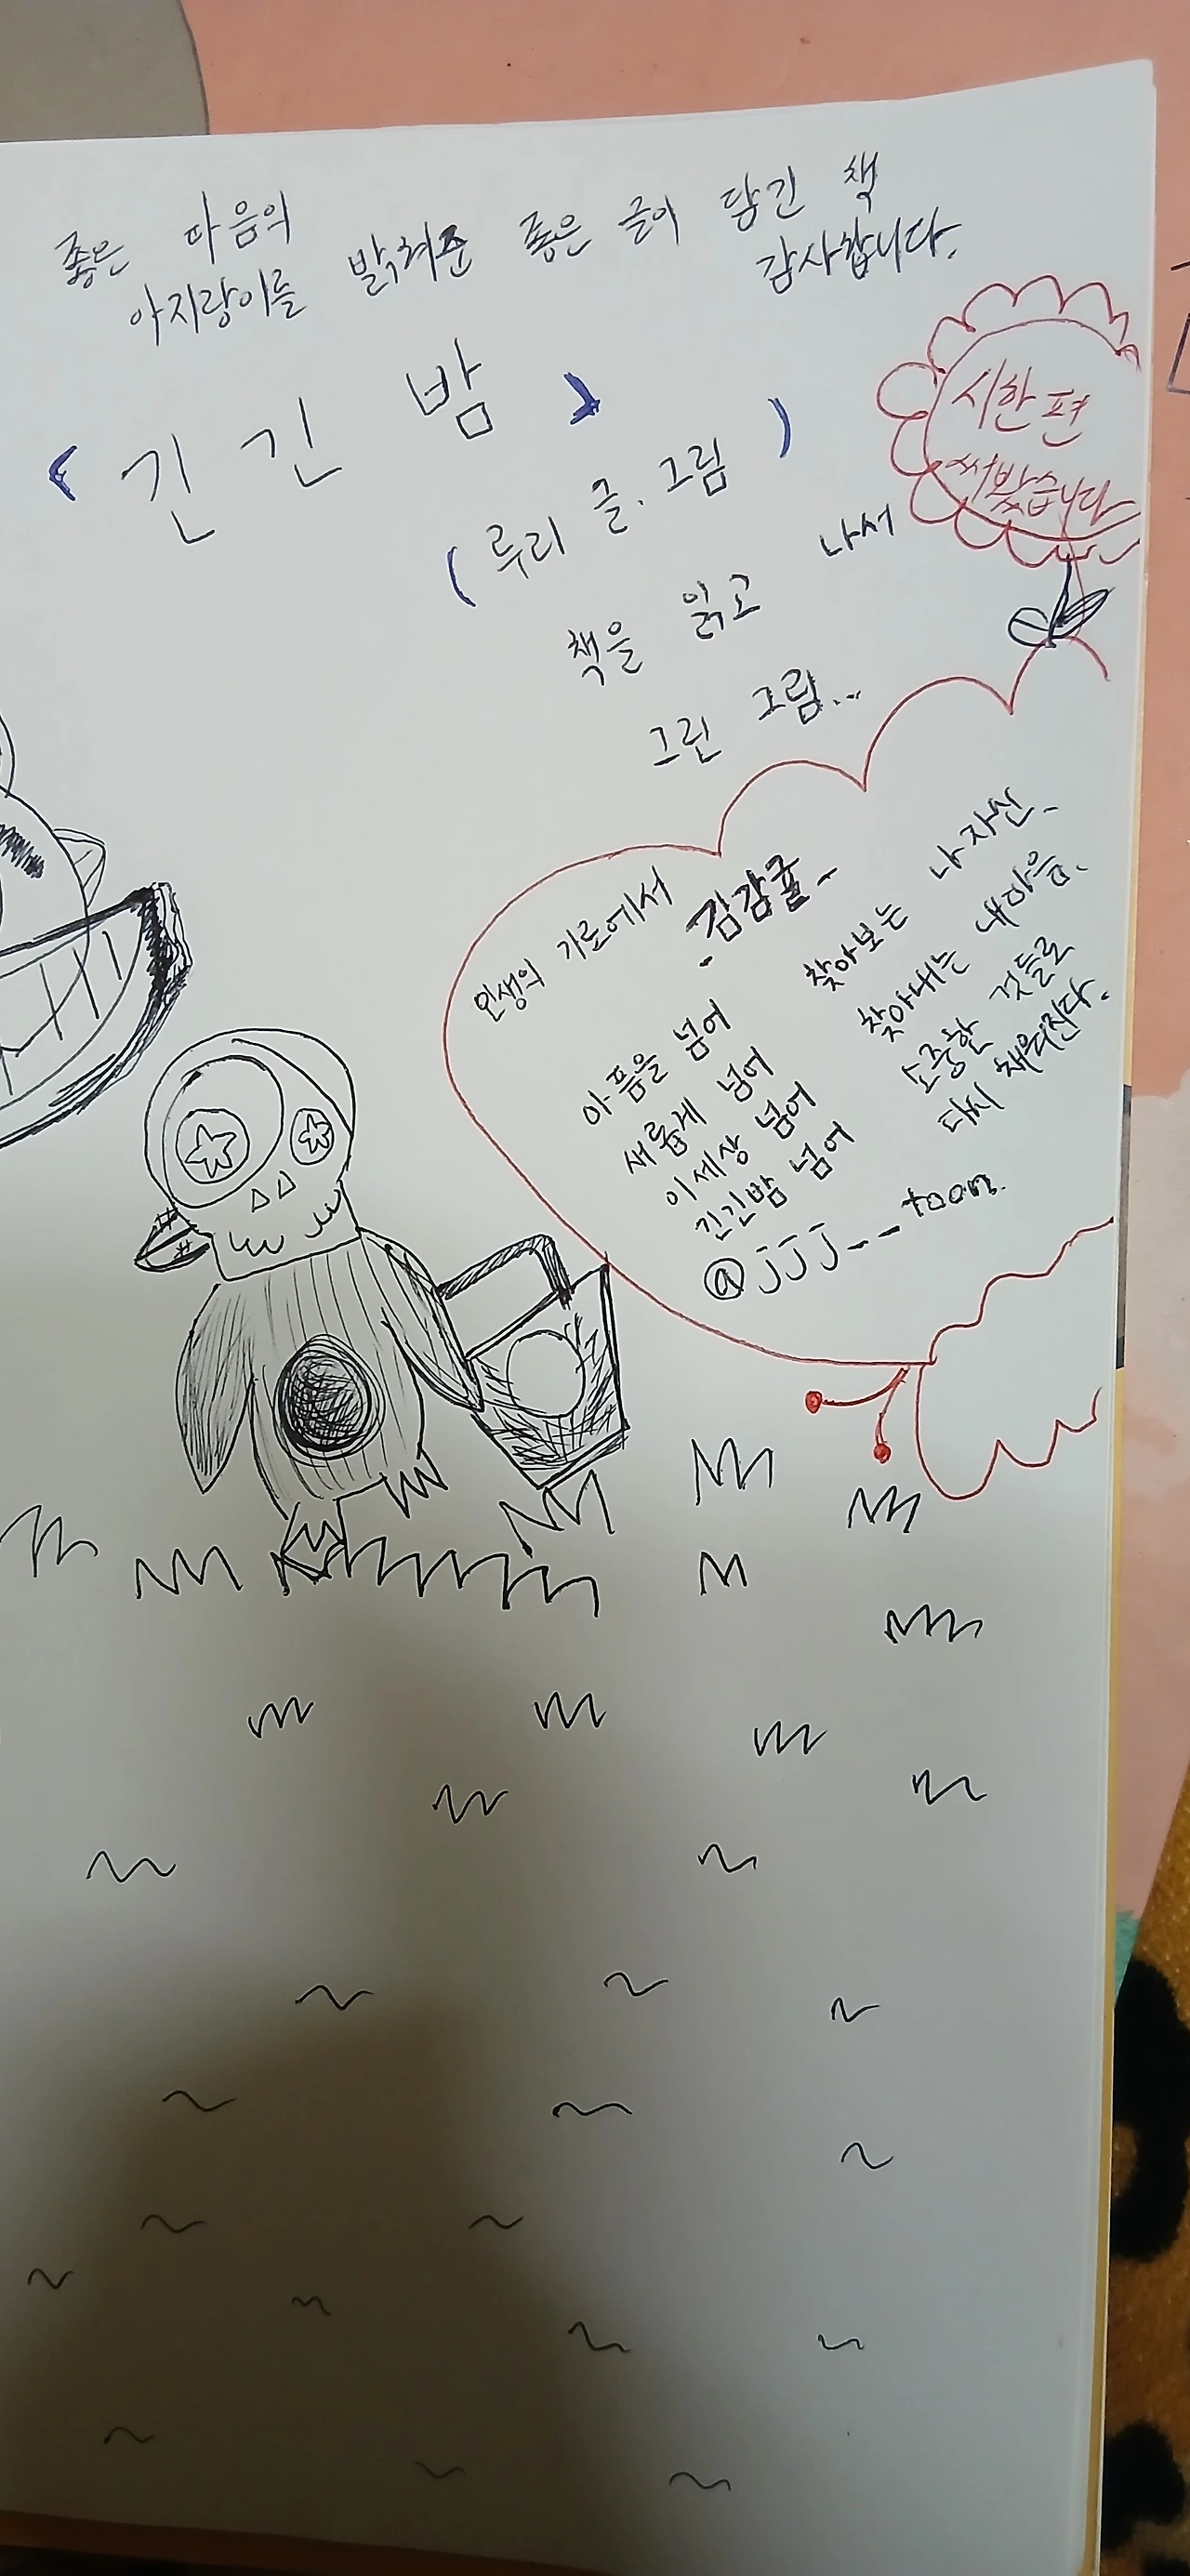 좋은 마음의
아지랑이를 밝혀준 좋은 글이 담긴 책
감사합니다.
< 긴 긴 밤 >
( 루리 글. 그림 )
책을 읽고 나서
그린 그림...
시 한 편
써봤습니다
인생의 기로에서
김감귤-
아픔을 넘어
새롭게 넘어
이세상 넘어
긴긴밤 넘어
찾아보는 나 자신.
찾아내는 내마음.
소중한 것들로
다시 채워진다.
@jjj__toon.